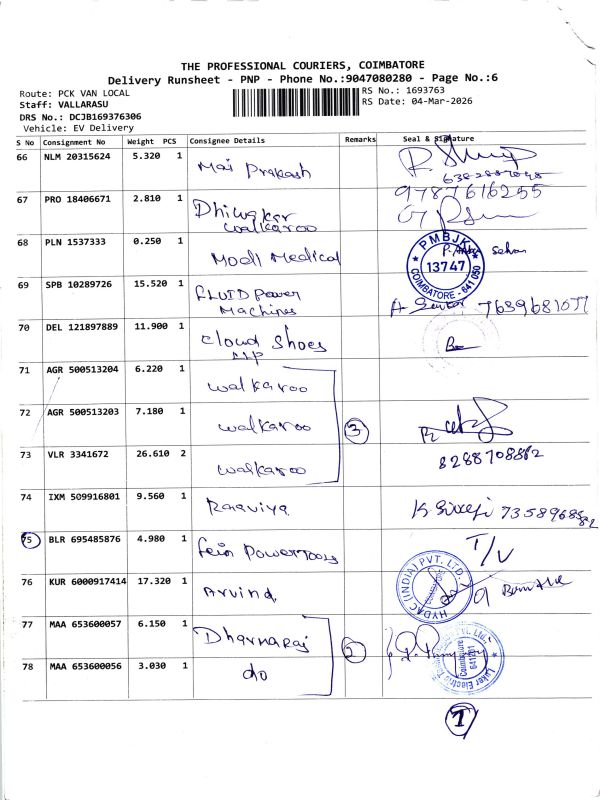 THE PROFESSIONAL COURIERS, COIMBATORE
Delivery Runsheet - PNP - Phone No.:9047080280 - Page No.:6
Route: PCK VAN LOCAL
RS No.: 1693763
Staff: VALLARASU
RS Date: 04-Mar-2026
DRS No.: DCJB169376306
Vehicle: EV Delivery
S No Consignment No Weight PCS Consignee Details Remarks Seal & Signature
66 NLM 20315624 5.320 1 Mai Prakash
67 PRO 18406671 2.810 1 Dhiwakar walkaroo 9787616255
68 PLN 1537333 0.250 1 Modi Medical
PMBJK 13747 COIMBATORE - 641050
69 SPB 10289726 15.520 1 FLUID Power Machines
70 DEL 121897889 11.900 1 Cloud Shoes
71 AGR 500513204 6.220 1 walkaroo
72 AGR 500513203 7.180 1 walkaroo 3
73 VLR 3341672 26.610 2 walkaroo
74 IXM 509916801 9.560 1 Raaviya
75 BLR 695485876 4.980 1 fein Powertools T/V
76 KUR 6000917414 17.320 1 Arvind
HYDAC (INDIA) PVT. LTD.
77 MAA 653600057 6.150 1 Dharmaraj 2
78 MAA 653600056 3.030 1 do